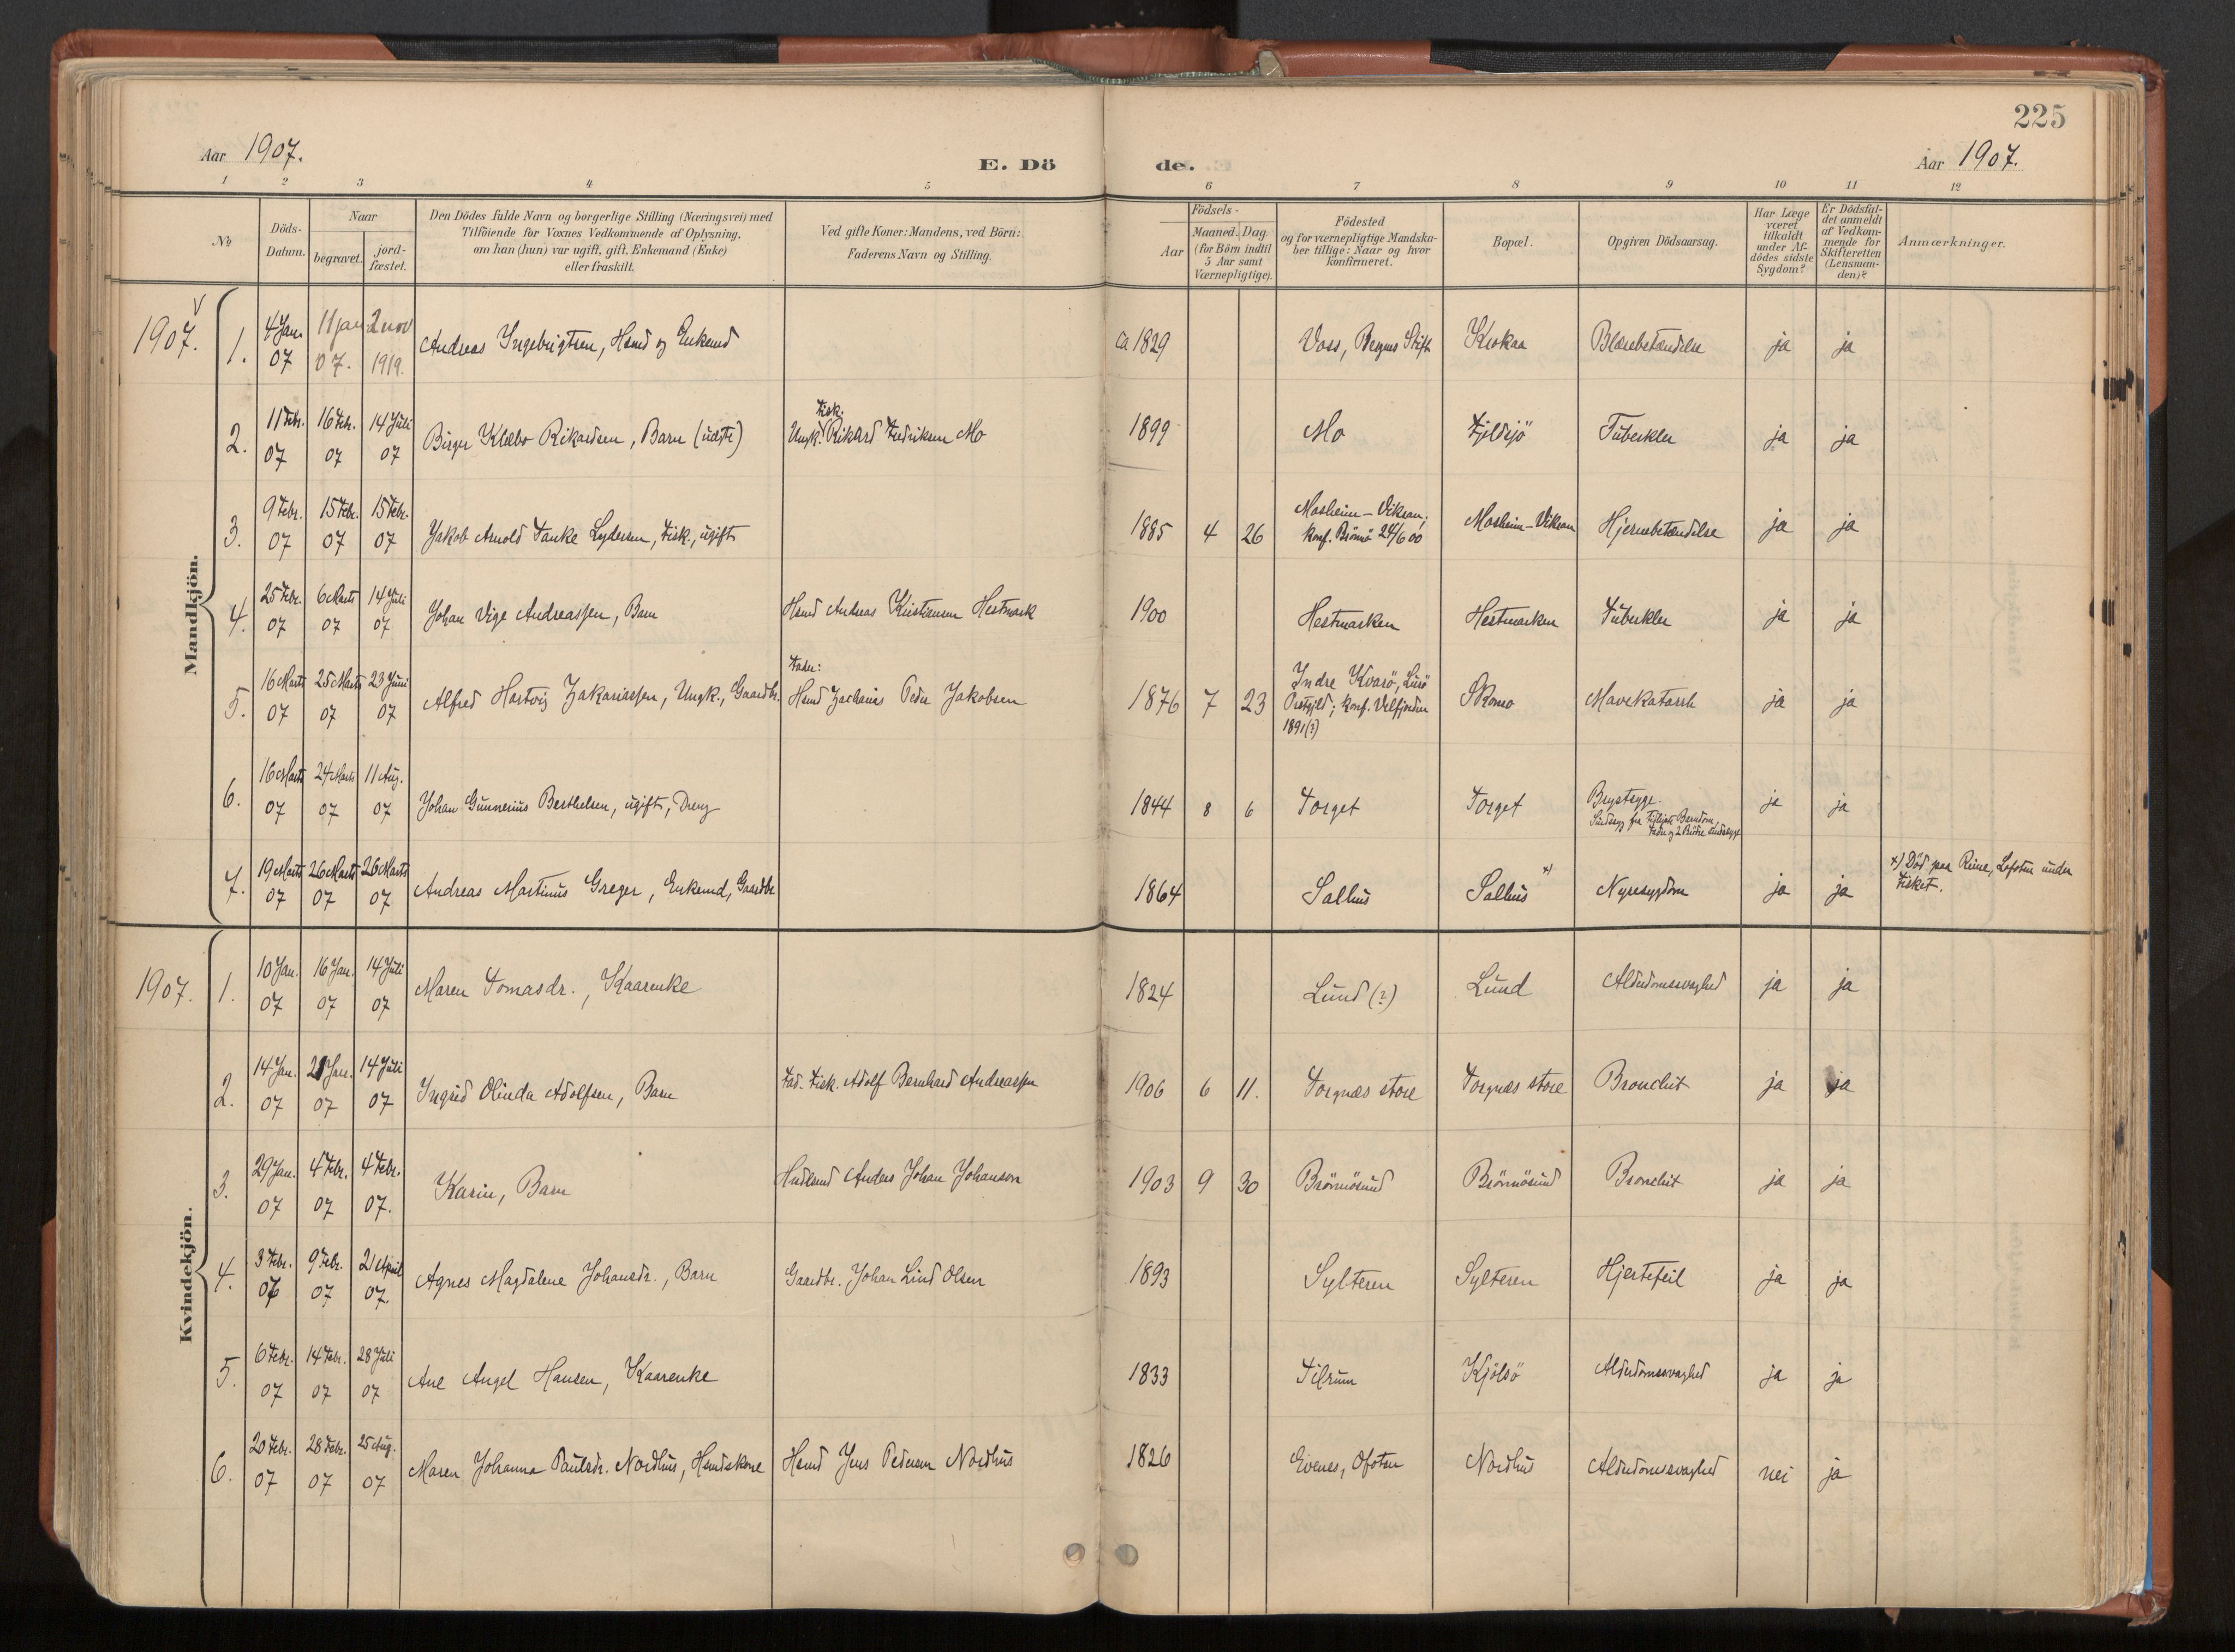 225
Aar 1907.
E. Dö de.
Aar 1907.
1 2 3 4 5 6 7 8 9 10 11 12
No
Döds-
Datum.
Naar
begravet.
jord-
fæstet.
Den Dödes fulde Navn og borgerlige Stilling (Næringsvei) med
Tilföiende for Voxnes Vedkommende af Oplysning,
om han (hun) var ugift, gift, Enkemand (Enke)
eller fraskilt.
Ved gifte Koner: Mandens, ved Börn:
Faderens Navn og Stilling.
Födsels-
Aar
Maaned.
Dag.
(for Börn indtil
5 Aar samt
Værnepligtige).
Födested
og for værnepligtige Mandska-
ber tillige: Naar og hvor
konfirmeret.
Bopæl.
Opgiven Dödsaarsag.
Har Læge
været
tilkaldt
under Af-
dödes sidste
Sygdom?
Er Dödsfal-
det anmeldt
af Vedkom-
mende for
Skifteretten
(Lensman-
den)?
Anmærkninger.
Mandkjön.
1907. 1. 4 Jan. 07 11 jan 07. 2 nov 1919. Andreas Ingebrigtsen, Hsmd og Enkemd ca 1829 Voss, Bergens Stift Krokaa Blærebetændelse ja ja
2. 11 Febr. 07 16 Febr. 07 14 Juli 07 Birger Klæbo Rikardsen, Barn (uægte) Ungk. Fisk. Rikard Fredriksen Mo 1899 Mo Fjeldsjö Tuberkler ja ja
3. 9 Febr. 07 15 Febr. 07 15 Febr. 07 Jakob Arnold Tanke Lydersen, Fisk., ugift 1885 4 26 Mosheim-Vikran; konf. Brönnö 24/6 00 Mosheim-Vikran Hjernebetændelse ja ja
4. 25 Febr. 07 6 Marts 07 14 Juli 07 Johan Vige Andreassen, Barn Hsmd Andreas Kristiansen Hestmark 1900 Hestmarken Hestmarken Tuberkler ja ja
5. 16 Marts 07 25 Marts 07 23 Juni 07 Alfred Hartvig Zakariassen, Ungk., Gaardbr. Fader: Hsmd Zacharias Peder Jakobsen 1876 7 23 Indre Kvarö, Lurö Prstgjld; konf. Velfjorden 1891(?) Skomo Mavekatarrh ja ja
6. 16 Marts 07 24 Marts 07 11 Aug. 07 Johan Gunnerius Berthelsen, ugift, Dreng 1844 8 6 Torget Torget Brystsyge. Sindssyg fra Barndom, Fader og 2 Brödre sindssyge ja ja
7. 19 Marts 07 26 Marts 07 26 Marts 07 Andreas Martinus Greger, Enkemd, Gaardbr 1864 Salhus Salhus x) Nyresygdom ja ja x) Död paa Reine, Lofoten under Fisket.
Kvindekjön.
1907. 1. 10 Jan. 07 16 Jan. 07 14 Juli 07 Maren Tomasdr., Kaarenke 1824 Lund (?) Lund Alderdomssvaghed ja ja
2. 14 Jan. 07 21 Jan. 07 14 Juli 07 Ingrid Olinda Adolfsen, Barn Fad. Fisk. Adolf Bernhard Andreassen 1906 6 11. Torgnæs store Torgnæs store Bronchit ja ja
3. 29 Jan. 07 4 Febr. 07 4 Febr. 07. Karin, Barn Anders Johan Johanson 1903 9 30 Brönnösund Brönnösund Bronchit ja ja
4. 3 Febr. 07 9 Febr. 07 21 April 07. Agnes Magdalene Johansdr., Barn Gaardbr. Johan Lind Olsen 1893 Sylteren Sylteren Hjertefeil ja ja
5. 6 Febr. 07 14 Febr. 07 28 Juli 07 Ane Angel Hansen, Kaarenke 1833 Tilrum Kjölsö Alderdomssvaghed ja ja
6. 20 Febr. 07 28 Febr. 07 25 Aug. 07 Maren Johanna Paulsdr. Nordhus, Hsmdskone Hsmd Jens Pedersen Nordhus 1826 Evenes, Ofoten Nordhus Alderdomssvaghed nei ja